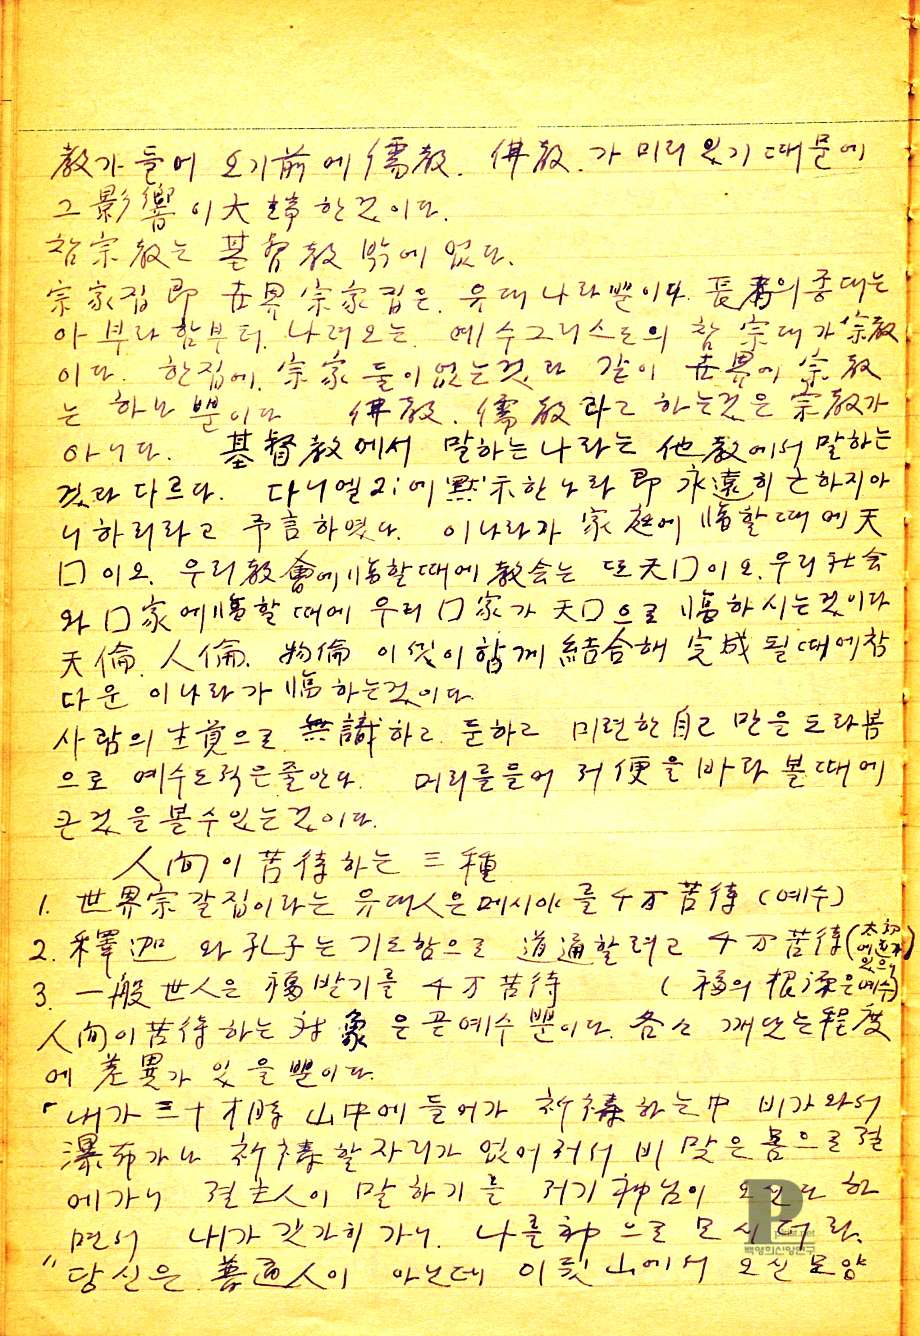 敎가 들어 오기前에 儒敎. 佛敎.가 미리 있기 때문에
그 影響이 大端한것이다.
참宗敎는 基督敎 밖에 없다.
宗家집 即 世界宗家집은 유대나라뿐이다. 長者의 종대는
아부라함부터. 나려오는 예수그리스도의 참 宗대가 宗敎
이다. 한집에 宗家들이 없는것과 같이 世界에 宗敎
는 하나 뿐이다 佛敎. 儒敎라고 하는것은 宗敎가
아니다. 基督敎에서 말하는 나라는 他敎에서 말하는
것과 다르다. 다니엘2:에 黙示한 나라 即 永遠히 근하지아
니하리라고 予言하였다. 이나라가 家庭에 臨할때에 天
口이오. 우리敎會에 臨할때에 敎会는 또天口이오. 우리社会
와 口家에 臨할때에 우리 口家가 天口으로 臨하시는것이다
天倫. 人倫. 物倫 이 것이 함께 結合해 完成될때에 참
다운 이나라가 臨하는것이다.
사람의 生覚으로 無識하고 둔하고 미련한 自己만을 도라봄
으로 예수도 적은줄안다. 머리를들어 저便을 바라볼때에
큰것을 볼수있는것이다.
人间이 苦待하는 三種
1. 世界宗갈집이라는 유대人은 메시야를 千万苦待 (예수)
2. 釋迦와 孔子는 기도함으로 道通할려고 千万苦待 (太初에 道가 있으니)
3. 一般世人은 福받기를 千万苦待 (福의 根源은예수)
人间이 苦待하는 対象은 곧예수뿐이다. 各各 깨닷는程度
에 差異가 있을뿐이다.
「내가 三十才時 山中에 들어가 祈祷하는中 비가와서
瀑布가나 祈祷할자리가 없어져서 비맞은몸으로 절
에가니 절主人이 말하기를 저기 神님이 오신다 하
면서 내가 갓가히 가니. 나를 神으로 모시더라.
"당신은 普通人이 아닌데 이릇 山에서 오신모양
백영희신앙연구